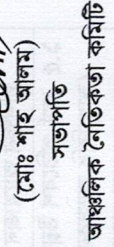 (মোঃ শাহ আলম)
সভাপতি
আঞ্চলিক নৈতিকতা কমিটি